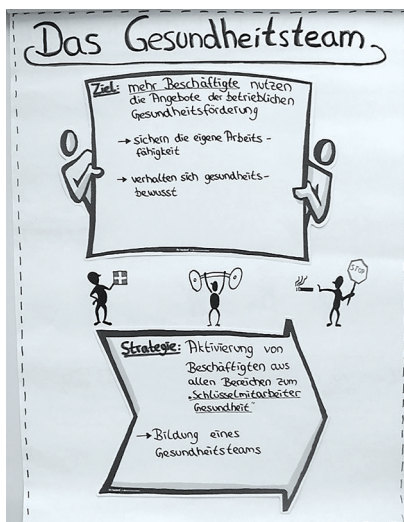 Das Gesundheitsteam
Ziel: mehr Beschäftigte nutzen
die Angebote der betrieblichen
Gesundheitsförderung
→ sichern die eigene Arbeits-
fähigkeit
→ verhalten sich gesundheits-
bewusst
STOP
Strategie: Aktivierung von
Beschäftigten aus
allen Bereichen zum
„Schlüsselmitarbeiter
Gesundheit"
→ Bildung eines
Gesundheitsteams